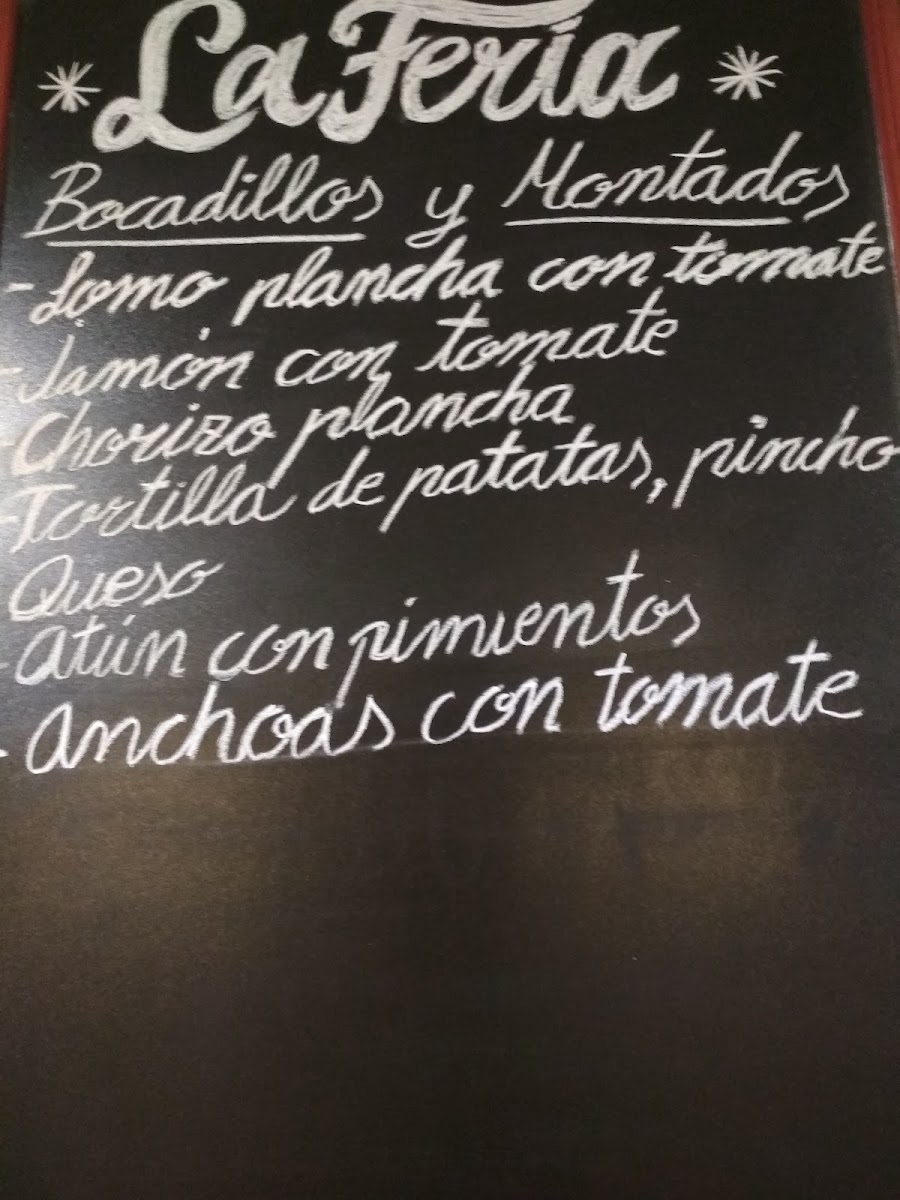 * La Feria *
Bocadillos y Montados
- Lomo plancha con tomate
- Jamón con tomate
- Chorizo plancha
- Tortilla de patatas, pincho
Queso
- Atún con pimientos
- Anchoas con tomate